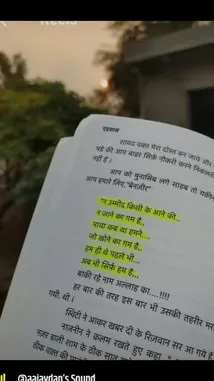 एहसास
शायद वक्त मेरा दोस्त बन जाये और
पड़े की आप बाहर सिर्फ नौकरी करने निकलती
नहीं है।
आप को मुनासिब लगे साहब तो यकीन
आप हमारे लिए, "बेनज़ीर"
"न उम्मीद किसी के आने की..
न जाने का गम है..
पाया कब था हमने....
जो खोने का गम है..
हम ही थे पहले भी...
अब भी सिर्फ हम है...
बाकी रहे नाम अल्लाह का....!!!!
हर बार की तरह इस बार भी उसकी तहरीर
गयी. थी।
स्विटी ने आकर खबर दी के रिज़वान सर आ गये
नाज़नीन ने कलम रखते हुए कहा
नज़र डाली शाम के ठीक सात
ठीक वक्त की
@aajaydan's Sound